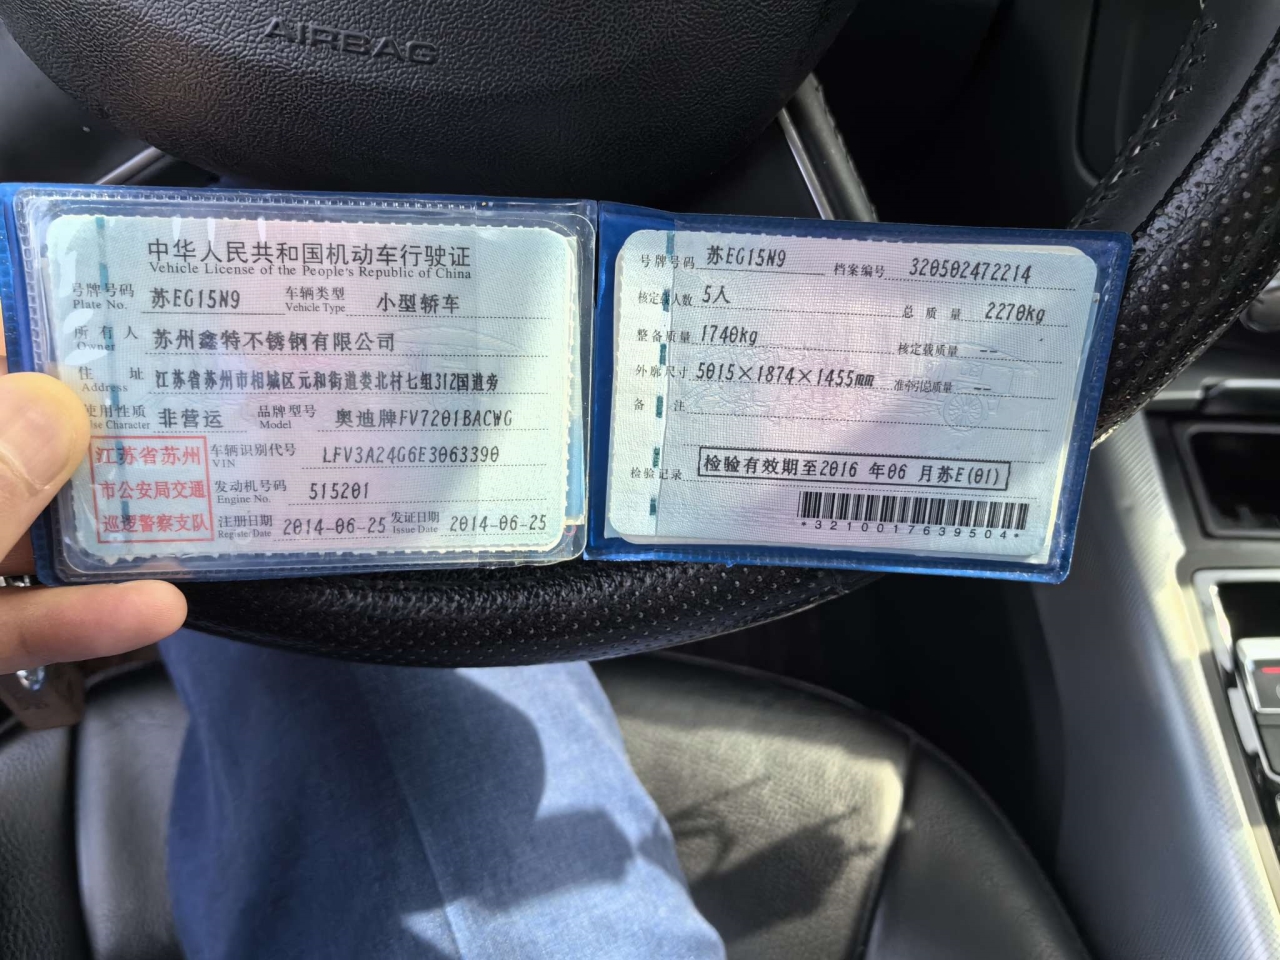 AIRBAG
中华人民共和国机动车行驶证
Vehicle License of the People's Republic of China
号牌号码 苏EG15N9 车辆类型 小型轿车
Plate No. Vehicle Type
所有人 苏州鑫特不锈钢有限公司
Owner
住址 江苏省苏州市相城区元和街道娄北村七组312国道旁
Address
使用性质 非营运 品牌型号 奥迪牌FV7201BACWG
Use Character Model
江苏省苏州
市公安局交通
巡逻警察支队
车辆识别代号 LFV3A24G6E3063390
VIN
发动机号码 515201
Engine No.
注册日期 2014-06-25 发证日期 2014-06-25
Register Date Issue Date
号牌号码 苏EG15N9 档案编号 320502472214
核定载人数 5人 总质量 2270kg
整备质量 1740kg 核定载质量 --
外廓尺寸 5015×1874×1455mm 准牵引总质量 --
备注
检验记录 检验有效期至2016年06月苏E(01)
*3210017639504*